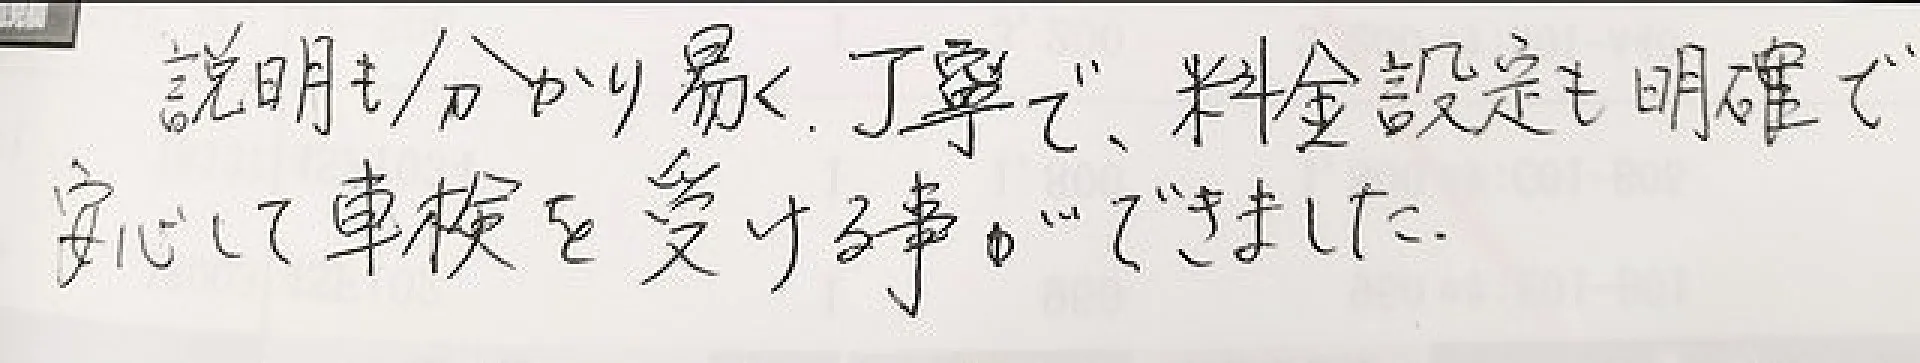 説明も分かり易く、丁寧で、料金設定も明確で
安心して車検を受ける事ができました。